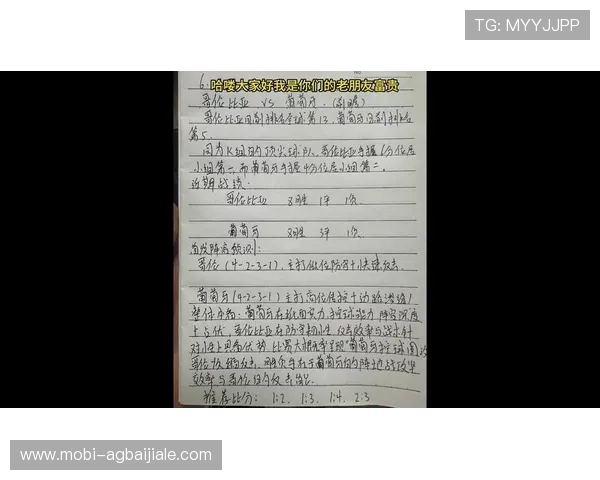 TG: MYYJJPP
6.
哈喽大家好我是你们的老朋友富贵
哥伦比亚 VS 葡萄牙.
哥伦比亚目前排名全球第13, 葡萄牙目前排名
第5.
因为K组的顶尖球队, 哥伦比亚手握6分位居
小组第一, 而葡萄牙手握4分位居小组第二.
近期战绩:
哥伦比亚 胜 1平 1负
葡萄牙 胜 3平 1负
首发阵容预测:
哥伦(4-2-3-1), 主打低位防守+快速反击.
葡萄牙(4-2-3-1)主打高位传控+边路渗透!
整体分析: 葡萄牙在纸面实力, 控球能力, 阵容深度
上占优, 哥伦比亚在防守韧性, 反击效率与战术针
对性上更有优势, 比赛大概率呈现"葡萄牙控球围攻
哥伦, 胜负手在于葡萄牙的阵地战攻坚
效率与哥伦的反击
推荐比分: 1:2, 1:3, 1:4, 2:3
www.mobi-agbaijiale.com